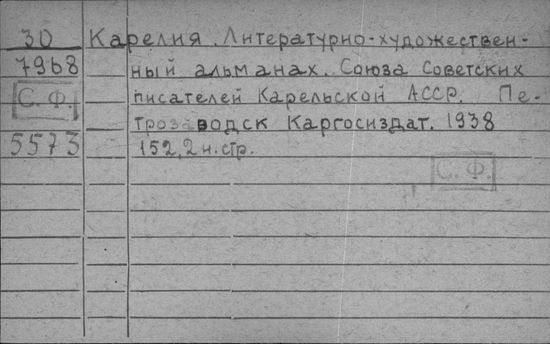 30 Карелия. Литературно-художествен-
7968 ный альманах. Союза Советских
С. Ф. писателей Карельской АССР. Пе-
трозаводск Каргосиздат. 1938
5573 152, 2 н. стр.
С. Ф.